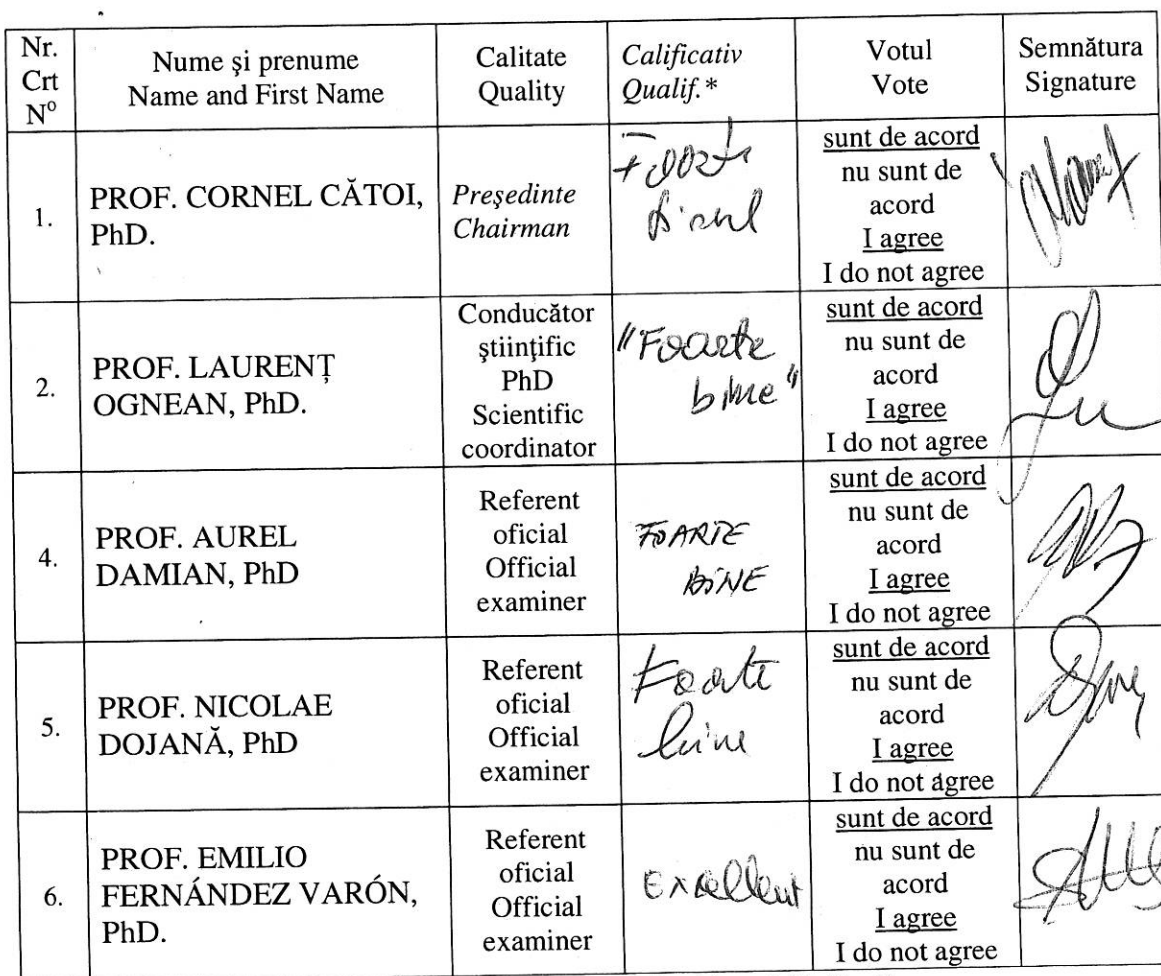 Nr.
Crt
Nº
Nume şi prenume
Name and First Name
Calitate
Quality
Calificativ
Qualif.*
Votul
Vote
Semnătura
Signature
1.
PROF. CORNEL CĂTOI,
PhD.
Preşedinte
Chairman
Foarte
bine
sunt de acord
nu sunt de
acord
I agree
I do not agree
2.
PROF. LAURENŢ
OGNEAN, PhD.
Conducător
ştiinţific
PhD
Scientific
coordinator
"Foarte
bine"
sunt de acord
nu sunt de
acord
I agree
I do not agree
4.
PROF. AUREL
DAMIAN, PhD
Referent
oficial
Official
examiner
FOARTE
BINE
sunt de acord
nu sunt de
acord
I agree
I do not agree
5.
PROF. NICOLAE
DOJANĂ, PhD
Referent
oficial
Official
examiner
Foarte
bine
sunt de acord
nu sunt de
acord
I agree
I do not agree
6.
PROF. EMILIO
FERNÁNDEZ VARÓN,
PhD.
Referent
oficial
Official
examiner
Excellent
sunt de acord
nu sunt de
acord
I agree
I do not agree